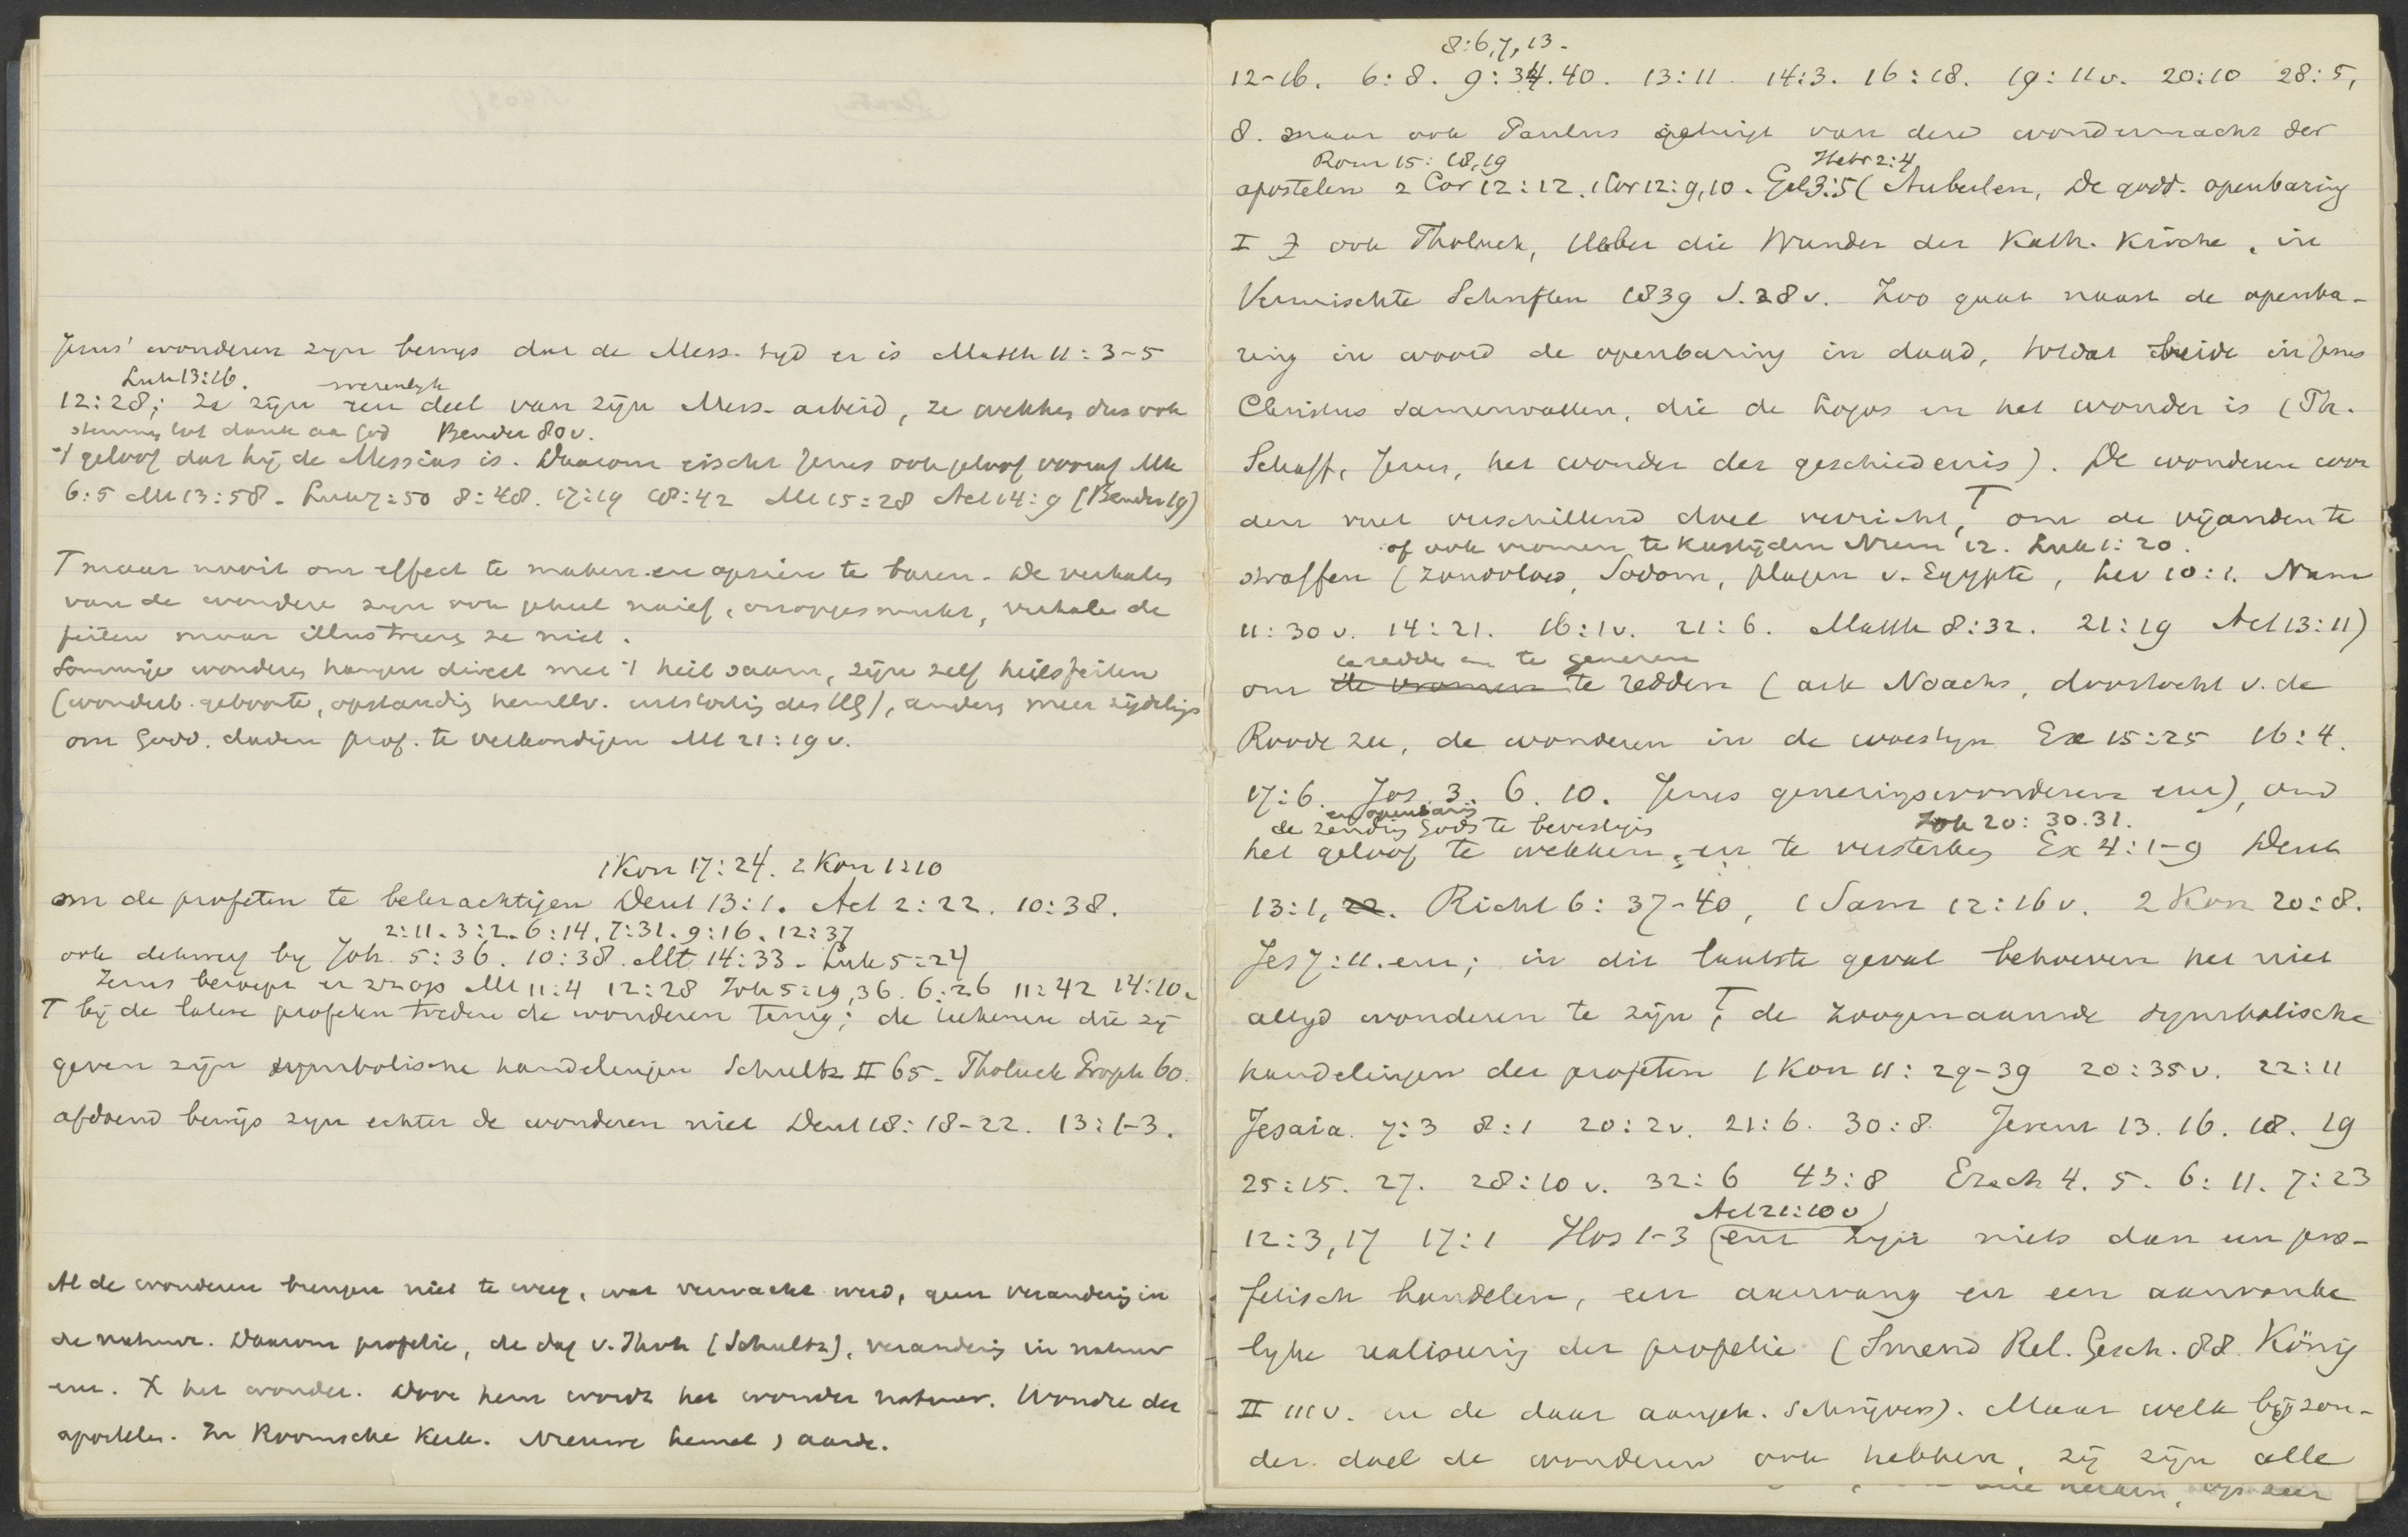 Jezus' wonderen zijn bewijs dat de Mess. tijd er is Matth 11:3-5
Luk 13:16. wezenlijk
12:28; ze zijn een deel van zijn Mess. arbeid, ze wekken dus ook
stemming tot dank aan God Bender 80v.
't geloof dat hij de Messias is. Daarom eischt Jezus ook geloof vooraf Mk
6:5 Mt 13:58. Luk 7:50 8:48. 17:19 18:42 Mt 15:28 Act 14:9 (Bender 19)
T maar nooit om effect te maken en opzien te baren. De verhalen
van de wonderen zijn ook geheel naief, onopgesmukt, verhalen de
feiten maar illustreeren ze niet.
Sommige wonderen hangen direct met 't heil saam, zijn zelf heilsfeiten
(wonderb. geboorte, opstanding hemelv. uitstorting des HG), anders meer zijdelings
om Godd. daden prof. te verkondigen Mt 21:19v.
1 Kon 17:24. 2 Kon 1:10
om de profeten te bekrachtigen Deut 13:1. Act 2:22. 10:38.
2:11. 3:2. 6:14. 7:31. 9:16. 12:37
ook by Joh. 5:36. 10:38. Mt 14:33. Luk 5:24
Jezus beroept er zich op Mt 11:4 12:28 Joh 5:19,36. 6:26 11:42 14:10.
T bij de latere profeten treden de wonderen terug; de teekenen die zij
geven zijn symbolische handelingen Schultz II 65. Tholuck Proph 60.
afdoend bewijs zijn echter de wonderen niet Deut 18:18-22. 13:1-3.
Al de wonderen brengen niet te weeg, wat verwacht werd, geen verandering in
de natuur. Daarom profetie, de dag v. Jhvh (Schultz), verandering in natuur
enz. X het wonder. Door hem wordt het wonder natuur. Wonder der
apostelen. In Roomsche Kerk. Nieuwe hemel aarde.
8:6,7,13.
12-16. 6:8. 9:34.40. 13:11 14:3. 16:18. 19:11v. 20:10 28:5,
8. maar ook Paulus getuigt van deze wondermacht der
Rom 15:18,19 Hebr 2:4
apostelen 2 Cor 12:12. 1 Cor 12:9,10. Gal 3:5 (Auberlen, De godd. openbaring
I ook Tholuck, Ueber die Wunder der Kath. Kirche, in
Vermischte Schriften 1839 S. 28v. Zoo gaat naast de openba-
ring in woord de openbaring in daad, totdat beide in Jezus
Christus samenvallen, die de Logos en het wonder is (Ph.
Schaff, Jezus, het wonder der geschiedenis). De wonderen wor
den met verschillend doel verricht, T om de vijanden te
of ook vromen te kastijden Num 12. Luk 1:20.
straffen (zondvloed, Sodom, plagen v. Egypte, Lev 10:1. Num
11:30v. 14:21. 16:1v. 21:6. Matth 8:32. 21:19 Act 13:11)
te redden en te genezen
om de vromen te redden (ark Noachs, doortocht v. de
Roode zee, de wonderen in de woestijn Ex 15:25 16:4.
17:6. Jos. 3. 6. 10. Jezus genezingswonderen enz), om
en openbaring
de zending Gods te bevestigen Joh 20:30.31.
het geloof te wekken, en te versterken Ex 4:1-9 Deut
13:1, 22. Richt 6:37-40, 1 Sam 12:16v. 2 Kon 20:8.
Jes 7:11. enz; in dit laatste geval behoeven het niet
altijd wonderen te zijn; T de zoogenaamde symbolische
handelingen der profeten 1 Kon 11:29-39 20:35v. 22:11
Jesaia. 7:3 8:1 20:2v. 21:6. 30:8. Jerem 13. 16. 18. 19
25:15. 27. 28:10v. 32:6 43:8 Ezech 4. 5. 6:11. 7:23
Act 21:10v)
12:3,17 17:1 Hos 1-3 (enz zijn niets dan een pro-
fetisch handelen, een aanvang en een aanvanke
lijke realiseering der profetie (Smend Rel. Gesch. 88. König
II 111v. en de daar aangeh. schrijvers). Maar welk bijzon-
der doel de wonderen ook hebben, zij zijn alle